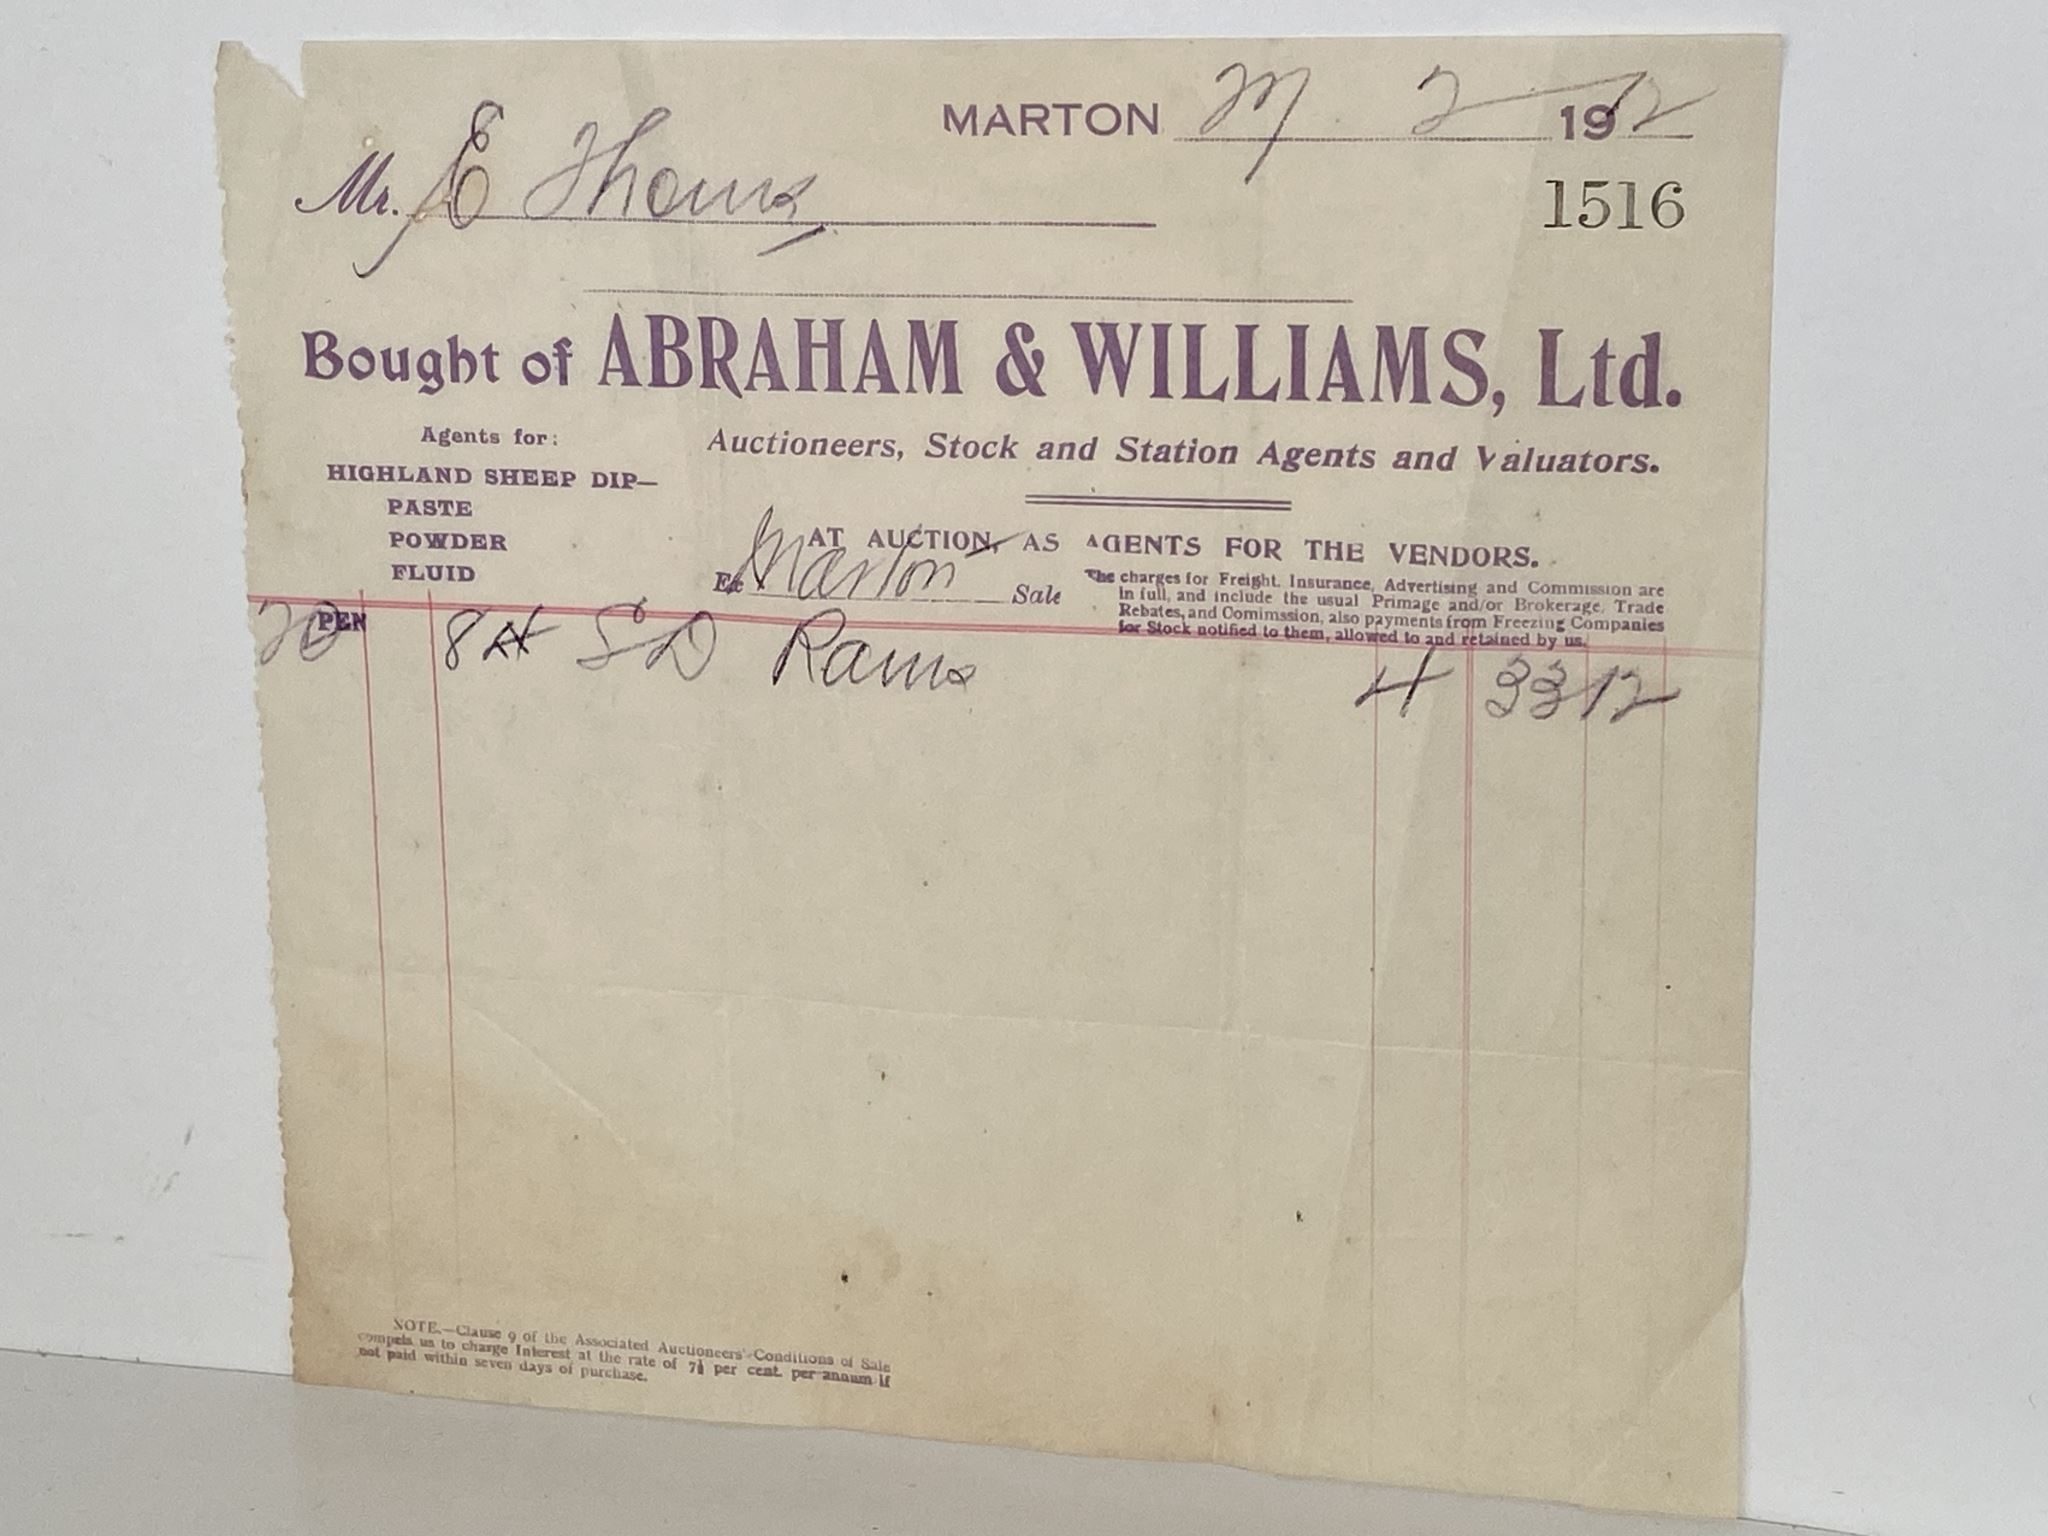 MARTON 27 . 2 - 1912
Mr. E Thoms
1516
Bought of ABRAHAM & WILLIAMS, Ltd.
Agents for:
HIGHLAND SHEEP DIP—
PASTE
POWDER
FLUID
Auctioneers, Stock and Station Agents and Valuators.
AT AUCTION, AS AGENTS FOR THE VENDORS.
Ex Marton Sale
The charges for Freight, Insurance, Advertising and Commission are
in full, and include the usual Primage and/or Brokerage, Trade
Rebates, and Comimssion, also payments from Freezing Companies
for Stock notified to them, allowed to and retained by us.
PEN
20 84 SD Rams 4 33 12
NOTE.—Clause 9 of the Associated Auctioneers' Conditions of Sale
compels us to charge Interest at the rate of 7½ per cent. per annum if
not paid within seven days of purchase.